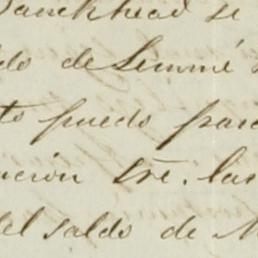 Bankhead se
do de Lemmé
to puedo para
ncion sre. las
del saldo de M